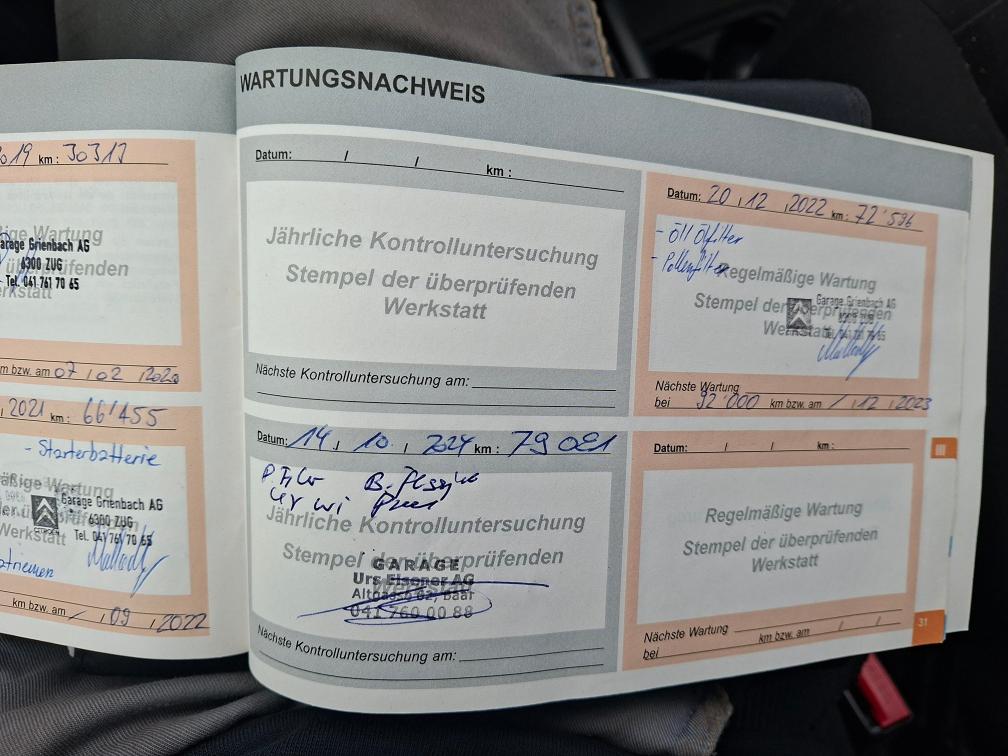 WARTUNGSNACHWEIS
2019 km : 30313
Garage Grienbach AG
6300 ZUG
Tel. 041 761 70 65
ige Wartung
überprüfenden
rkstatt
m bzw. am 07 / 02 2020
2021 km : 66'455
- Starterbatterie
äßige Wartung
Garage Grienbach AG
6300 ZUG
Tel. 041 761 70 65
CITROËN
Werkstatt
km bzw. am / 09 / 2022
Datum: / / km :
Jährliche Kontrolluntersuchung
Stempel der überprüfenden
Werkstatt
Nächste Kontrolluntersuchung am:
Datum: 14 / 10. / 2024 km : 79 021
Jährliche Kontrolluntersuchung
Stempel der überprüfenden
Werkstatt
GARAGE
Urs Elsener AG
Baar
041 760 00 88
Nächste Kontrolluntersuchung am:
Datum: 20 / 12 / 2022 km : 72'596
- Öl / Ölfilter
- Pollenfilter
Regelmäßige Wartung
Stempel der überprüfenden
Werkstatt
Garage Grienbach AG
6300 ZUG
Tel. 041 761 70 65
Nächste Wartung
bei 92'000 km bzw. am / / 12 / 2023
Datum: / / km :
Regelmäßige Wartung
Stempel der überprüfenden
Werkstatt
Nächste Wartung
bei km bzw. am / /
III
31